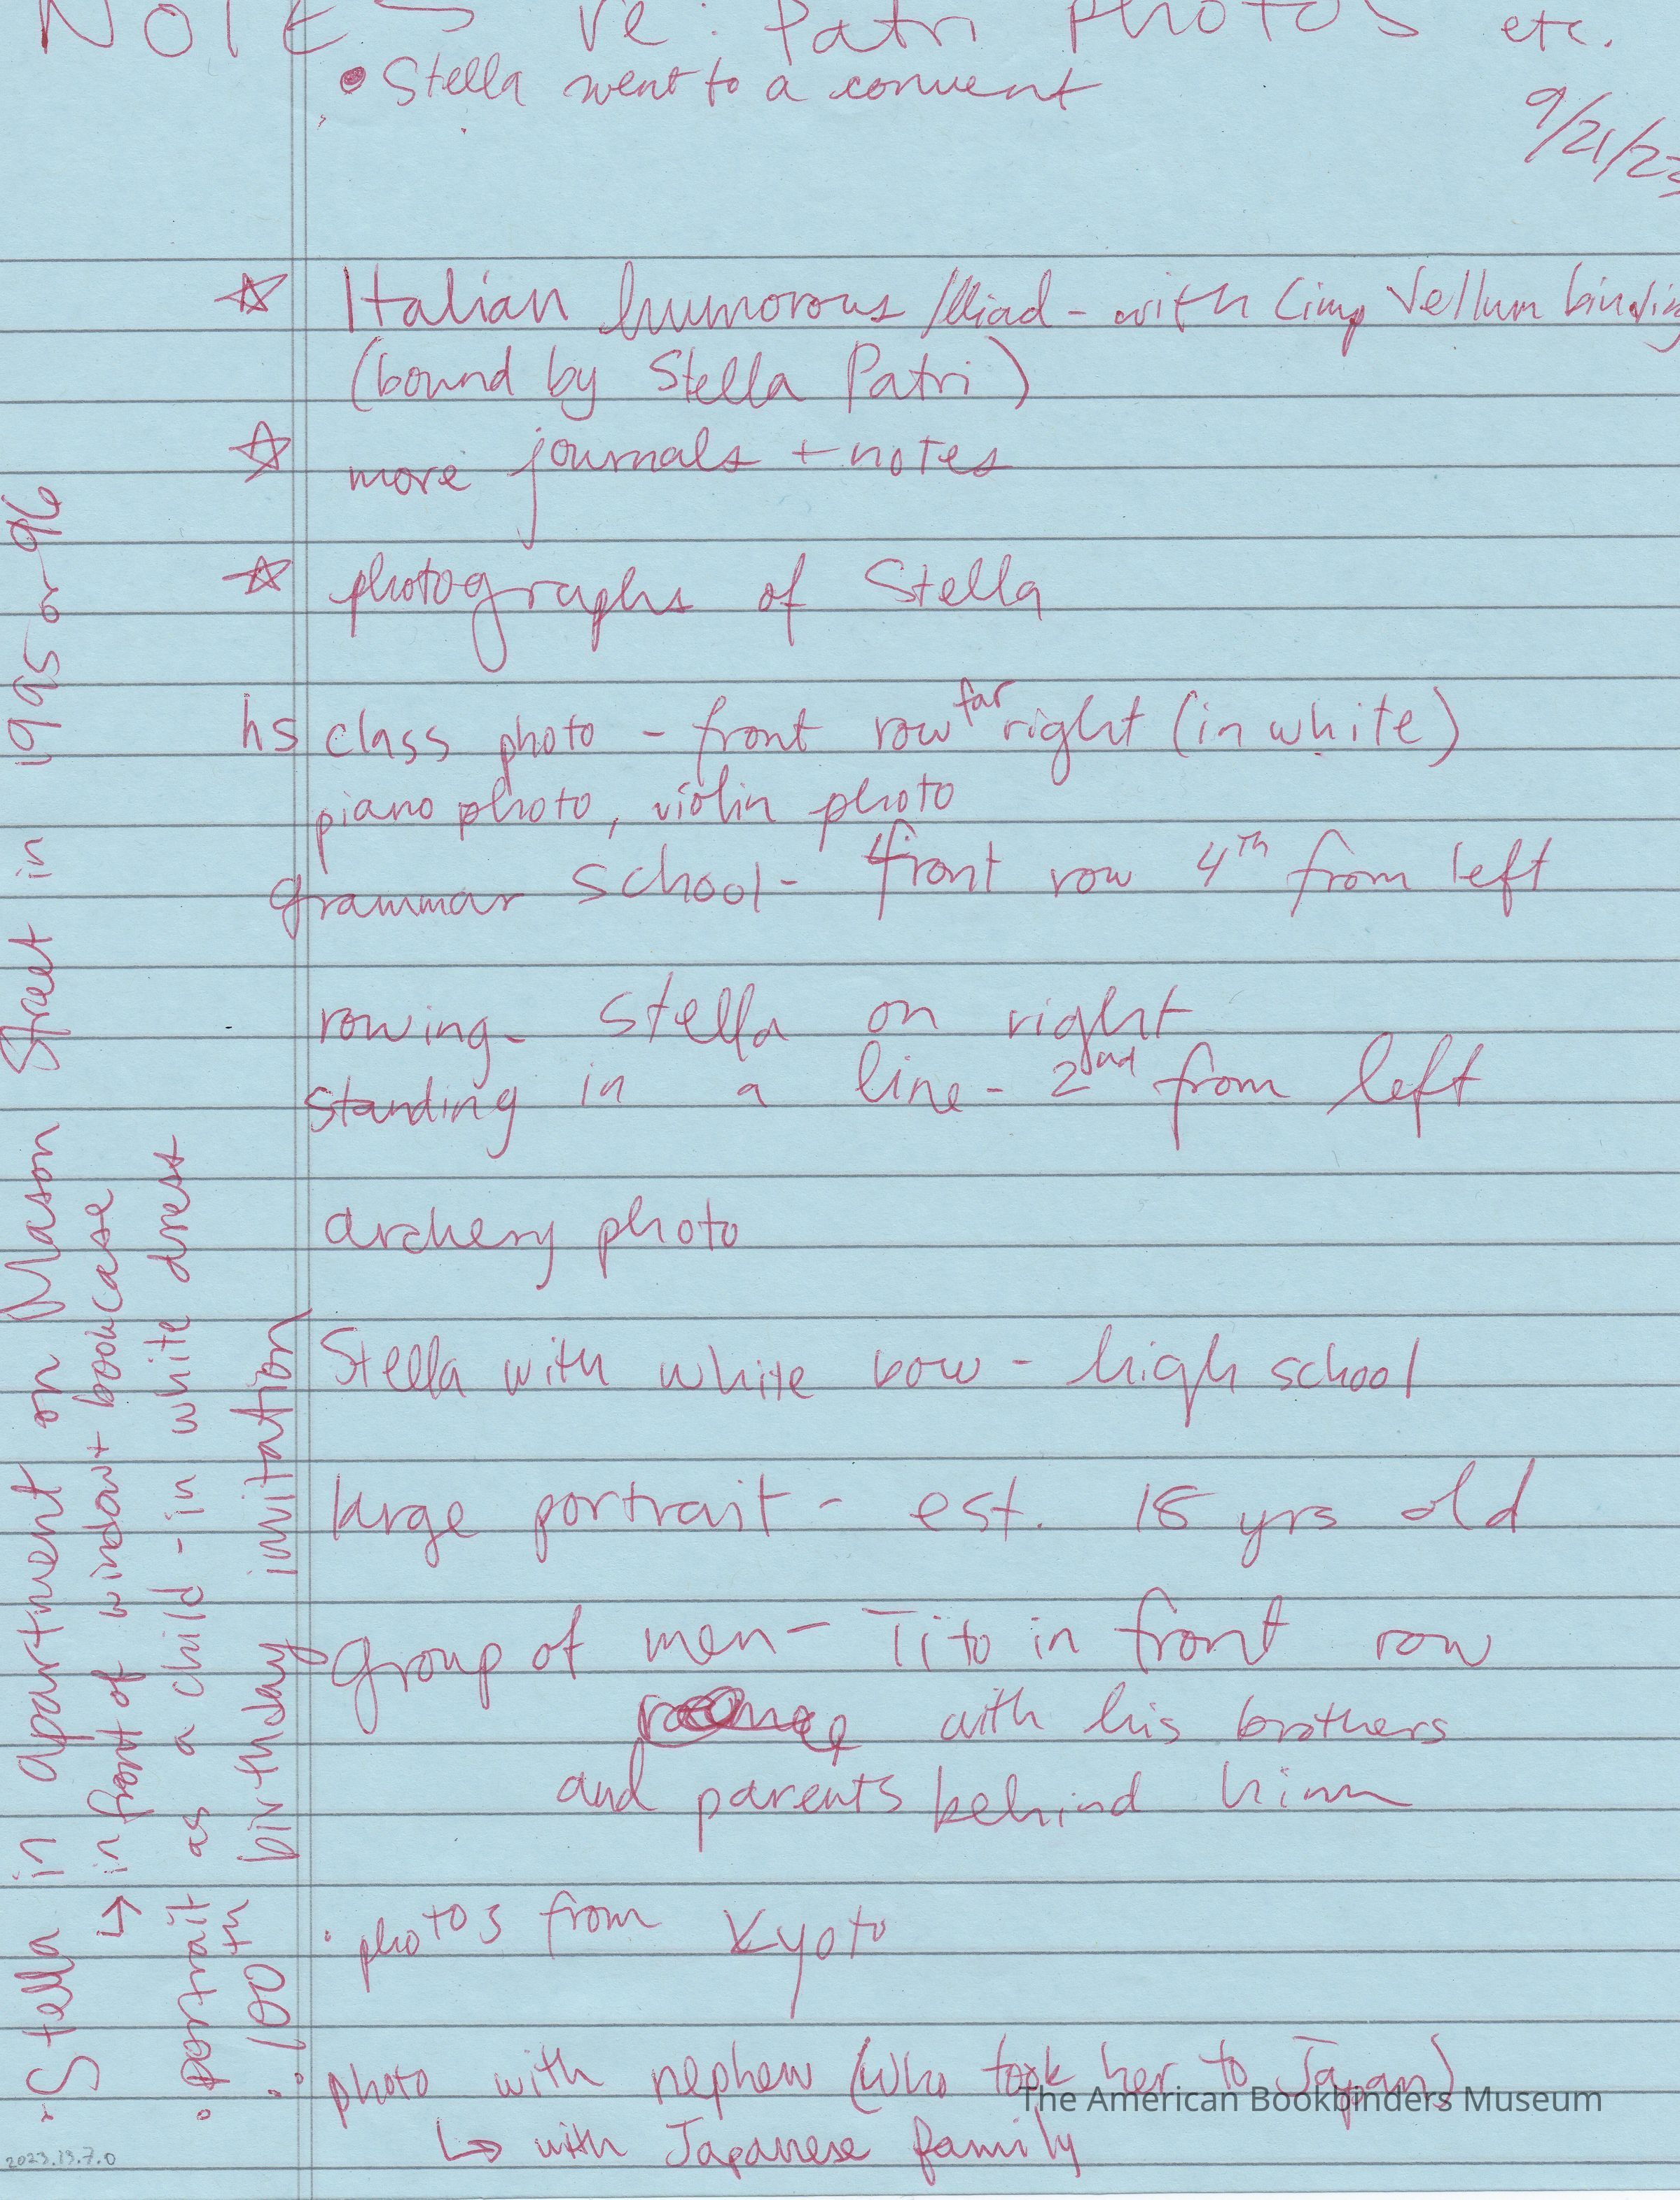 NOTES re: Patri photos etc.
• Stella went to a convent
9/21/23
☆ Italian humorous Illiad - with limp vellum binding
(bound by Stella Patri)
☆ more journals + notes
☆ photographs of Stella
hs class photo - front row far right (in white)
piano photo, violin photo
grammar school - front row 4th from left
rowing - Stella on right
standing in a line - 2nd from left
archery photo
Stella with white bow - high school
large portrait - est. 18 yrs old
group of men - Tito in front row
with his brothers
and parents behind him
· photos from Kyoto
· photo with nephew (who took her to Japan)
↳ with Japanese family
· Stella in apartment on Mason Street in 1995 or 96
↳ in front of window + bookcase
· portrait as a child - in white dress
· 100th birthday invitation
2023.13.7.0
The American Bookbinders Museum